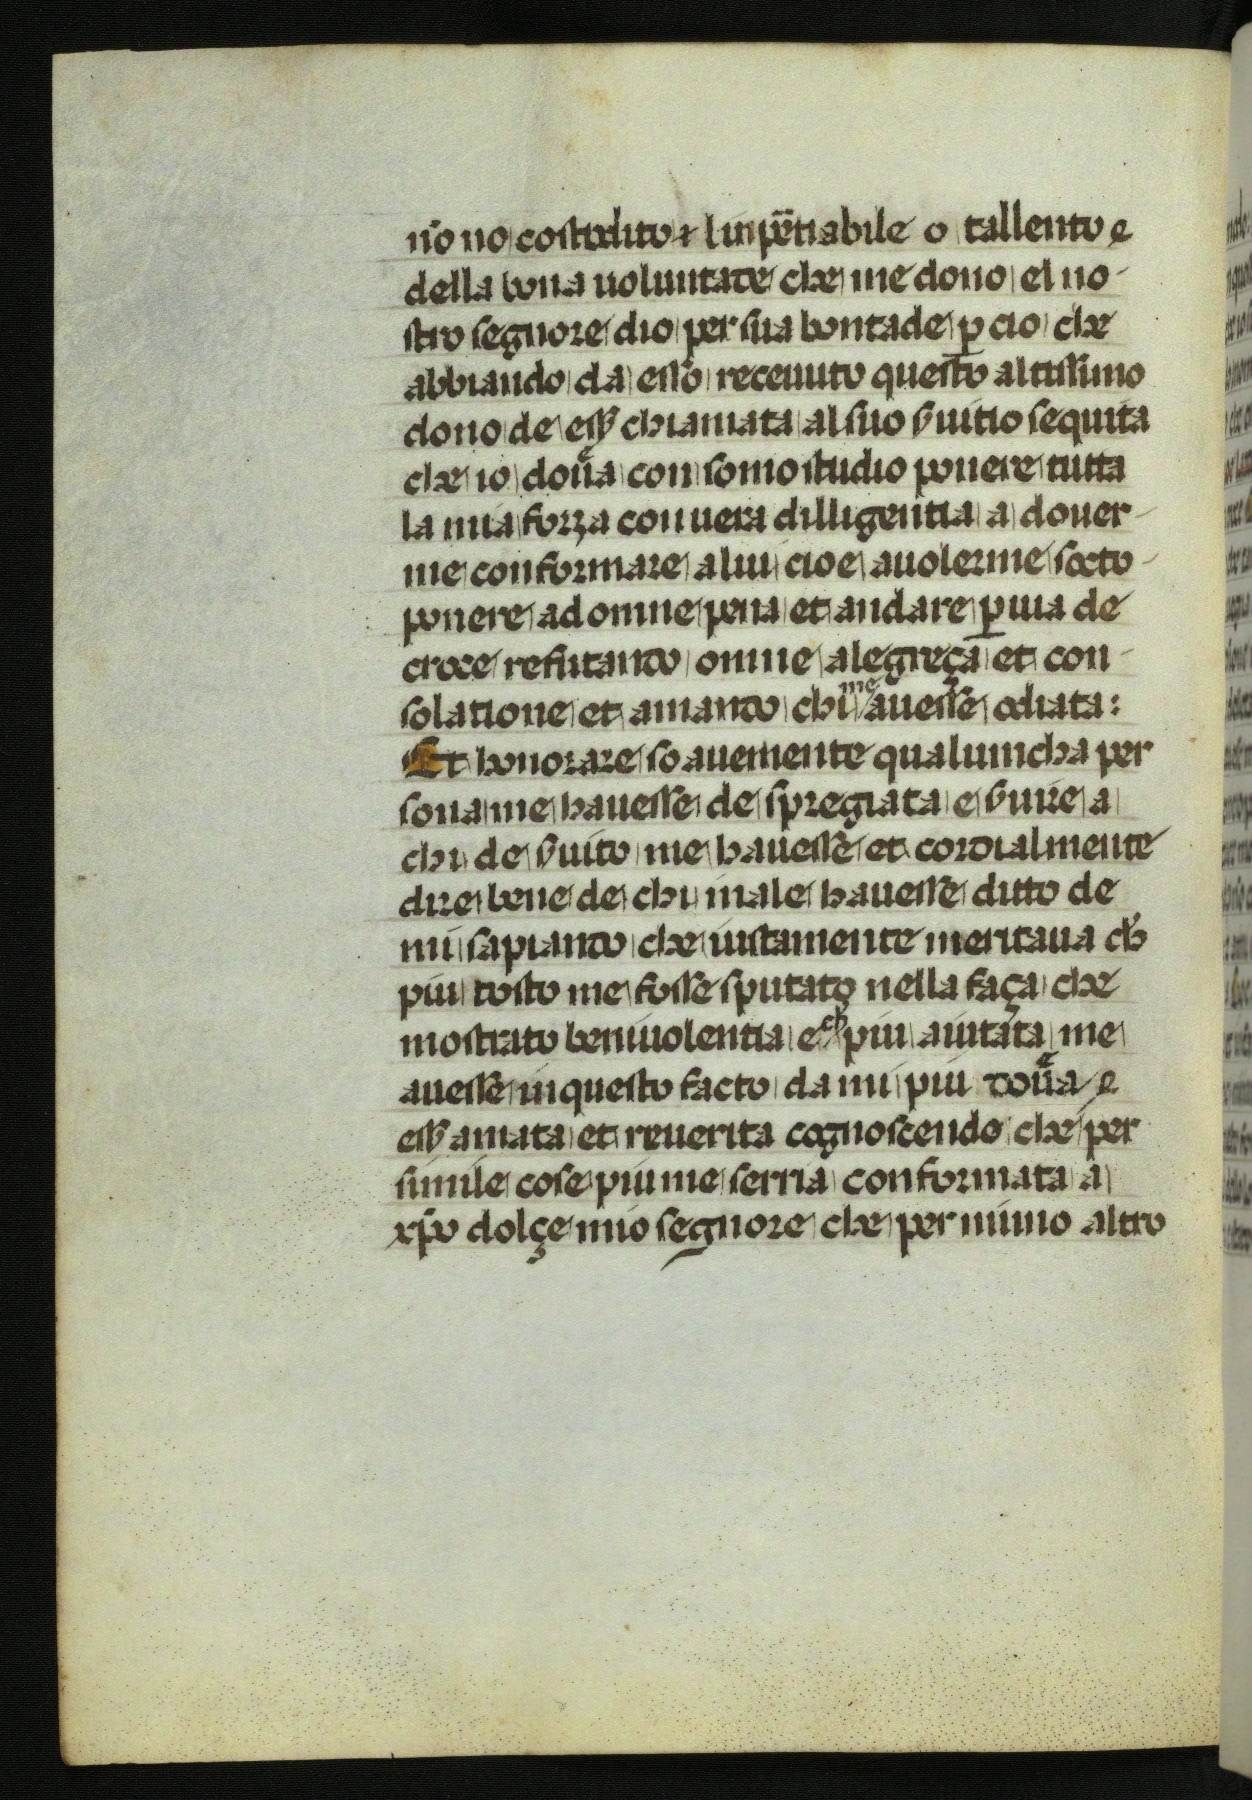 nr̄o no costodito ⁊ linpētiabile o tallento e
della bona uoluntate che me dono el no-
stro segnore dio per sua bontade ꝑ cio che
abbiando da esso receuuto questo altissimo
dono de ess̄ chiamata al suo s̄uitio sequita
che io dou̾ea con somo studio ponere tutta
la mia forza con uera dilligentia a douer-
me conformare a lui cioe a uolerme socto-
ponere ad omne pena et andare ꝑ uia de
croce refiutando omne alegreça et con-
solatione et amando chi me auesse odiata:
Et honorare soauemente qualuncha per
sona me hauesse despregiata e s̄uire a
chi des̄uito me hauesse et cordialmente
dire bene de chi male hauesse ditto de
mi sapiando che iustamente meritaua ch̄
piu tosto me fosse sputato nella faça che
mostrato beniuolentia e ch̄ piu aiutata me
auesse in questo facto da mi piu dou̾ea e
ess̄ amata et reuerita cognoscendo che per
simile cose piu me serria conformata a
xp̄o dolçe mio segnore che per niuno altro